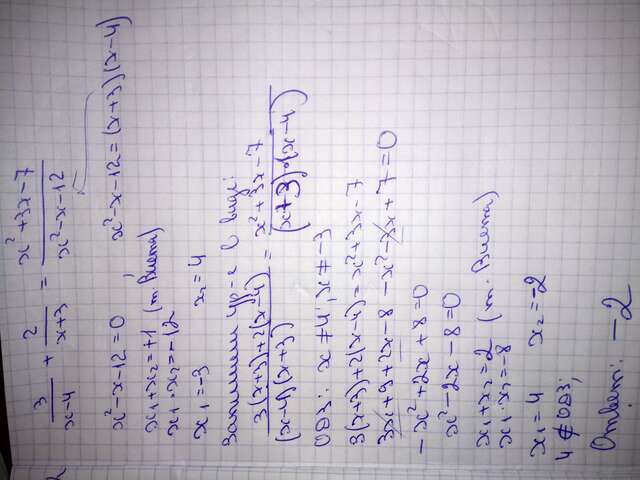 3/(x-4) + 2/(x+3) = (x²+3x-7)/(x²-x-12)
x²-x-12=0 x²-x-12=(x+3)(x-4)
x₁+x₂=+1 (т. Виета)
x₁·x₂=-12
x₁=-3 x₂=4
Запишем ур-е в виде:
(3(x+3)+2(x-4))/((x-4)(x+3)) = (x²+3x-7)/((x+3)·(x-4))
ОДЗ: x≠4; x≠-3
3(x+3)+2(x-4)=x²+3x-7
3x+9+2x-8-x²-3x+7=0
-x²+2x+8=0
x²-2x-8=0
x₁+x₂=2 (т. Виета)
x₁·x₂=-8
x₁=4 x₂=-2
4∉ОДЗ;
Ответ: -2